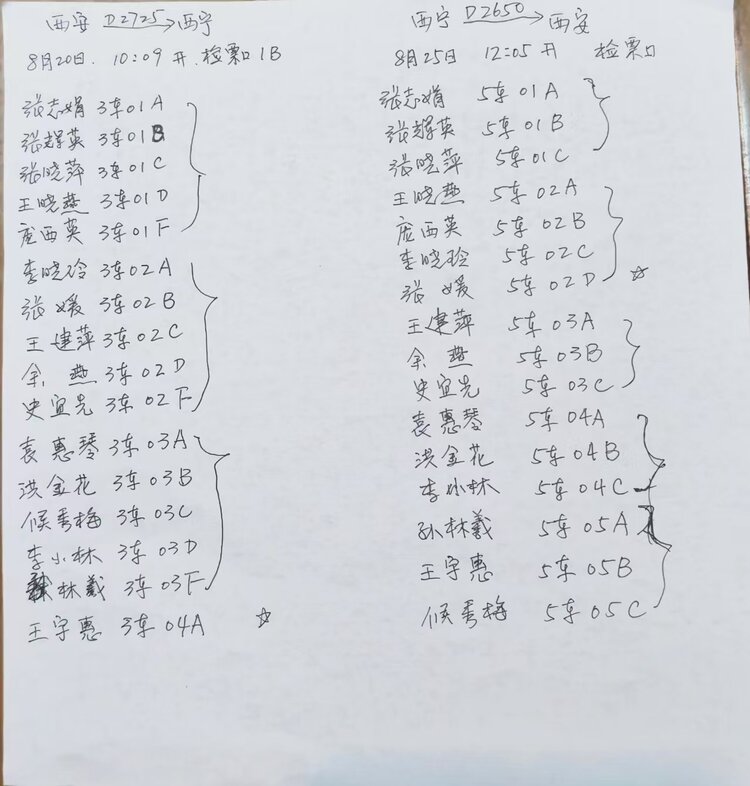 西安 D2725 西宁
8月20日. 10:09 开. 检票口 1B
张志娟 3车01A
张辉英 3车01B
张晓萍 3车01C
王晓燕 3车01D
庞西英 3车01F
李晓玲 3车02A
张 媛 3车02B
王建萍 3车02C
余 燕 3车02D
史宜先 3车02F
袁惠琴 3车03A
洪金花 3车03B
候秀梅 3车03C
李小林 3车03D
林羲 3车03F
王宇惠 3车04A ☆
西宁 D2650 西安
8月25日 12:05 开 检票口
张志娟 5车01A
张辉英 5车01B
张晓萍 5车01C
王晓燕 5车02A
庞西英 5车02B
李晓玲 5车02C
张 媛 5车02D ☆
王建萍 5车03A
余 燕 5车03B
史宜先 5车03C
袁惠琴 5车04A
洪金花 5车04B
李小林 5车04C
孙林羲 5车05A
王宇惠 5车05B
候秀梅 5车05C